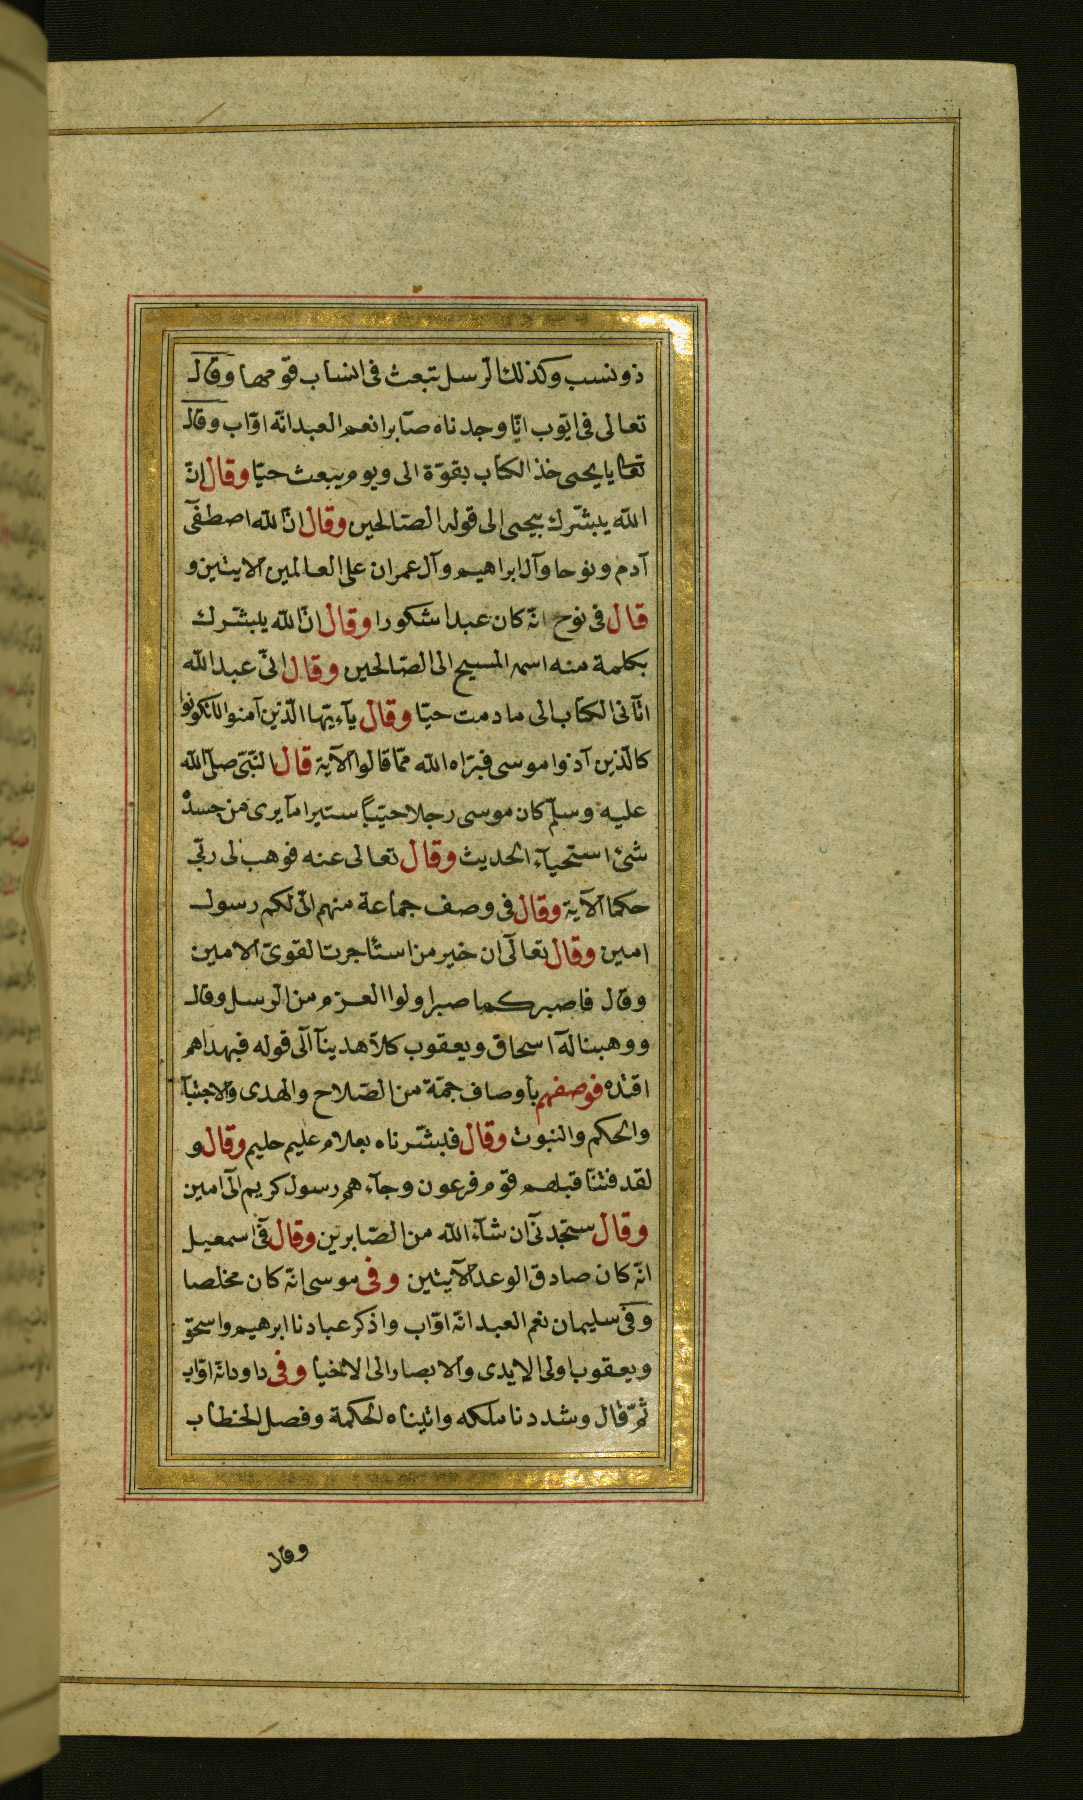 ذو نسب وكذلك الرسل تبعث فى انساب قومها وقال
تعالى فى ايّوب انّا وجدناه صابرا نعم العبد انّه اوّاب وقال
تعا يا يحيى خذ الكتاب بقوّة الى ويوم يبعث حيّا وقال إنّ
الله يبشّرك بيحيى الى قوله الصّالحين وقال انّ الله اصطفى
آدم ونوحا وآل ابراهيم وآل عمران على العالمين الايتين و
قال فى نوح انّه كان عبدا شكورا وقال انّ الله يبشّرك
بكلمة منه اسمه المسيح الى الصّالحين وقال انّى عبد الله
اتآنى الكتاب الى ما دمت حيّا وقال يآءيّها الّذين آمنوا لا تكونوا
كالّذين آذوا موسى فبرّاه الله ممّا قالوا الآية قال النّبىّ صلّى الله
عليه وسلّم كان موسى رجلا حييّا ستيرا ما يرى من جسده
شئ استحياء الحديث وقال تعالى عنه فوهب لى ربّى
حكما الآية وقال فى وصف جماعة منهم انّى لكم رسول
امين وقال تعالى ان خير من استأجرت القوىّ الامين
وقال فاصبر كما صبر اولوا العزم من الرسل وقال
ووهبنا له اسحاق ويعقوب كلاّ هدينا الى قوله فبهداهم
اقتده فوصفهم بأوصاف جمّة من الصّلاح والهدى والاجتبآ
والحكم والنبوت وقال فبشّرناه بغلام عليم حليم وقال و
لقد فتنا قبلهم قوم فرعون وجآءهم رسول كريم الى امين
وقال ستجدنى ان شآء الله من الصّابرين وقال فى اسمعيل
انّه كان صادق الوعد الآيتين وفى موسى انّه كان مخلصا
وفى سليمان نعم العبد انّه اوّاب واذكر عبادنا ابرهيم واسحق
ويعقوب اولى الايدى والابصار الى الاخيا وفى داود انّه اوّاب
ثمّ قال وشددنا ملكه واتيناه الحكمة وفصل الخطاب
وقال